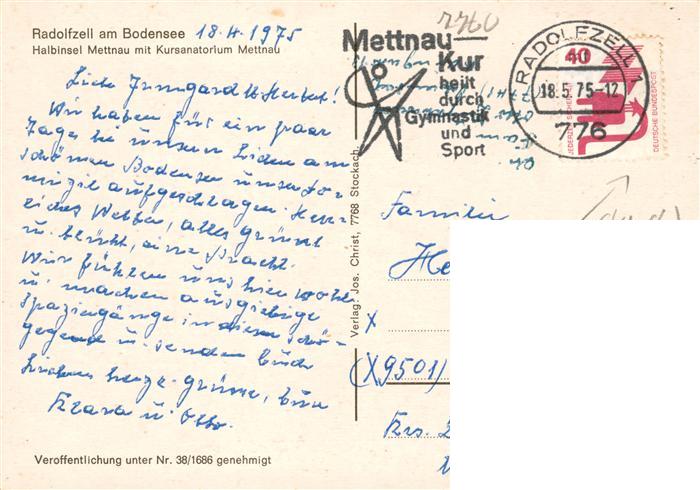 Radolfzell am Bodensee 18.4.1975
Halbinsel Mettnau mit Kursanatorium Mettnau
Liebe Irmgard u. Herbert!
Wir haben für ein paar
Tage bei unseren Lieben am
schönen Bodensee unser Do-
mizil aufgeschlagen. Herr-
liches Wetter, alles grünt
u. blüht, eine Pracht.
Wir fühlen uns hier wohl
u. machen ausgiebige
Spaziergänge in dieser schö-
gegend u. senden Euch
Lieben herzl. Grüsse, Eure
Klara u. Otto.
Veröffentlichung unter Nr. 38/1686 genehmigt
Verlag: Jos. Christ, 7768 Stockach
7760
Mettnau
Kur
heilt
durch
Gymnastik
und
Sport
RADOLFZELL 1
18.5.75-12
776
40
JEDERZEIT SICHERHEIT
DEUTSCHE BUNDESPOST
Familie
He
X
(X9501)
Krs. Z